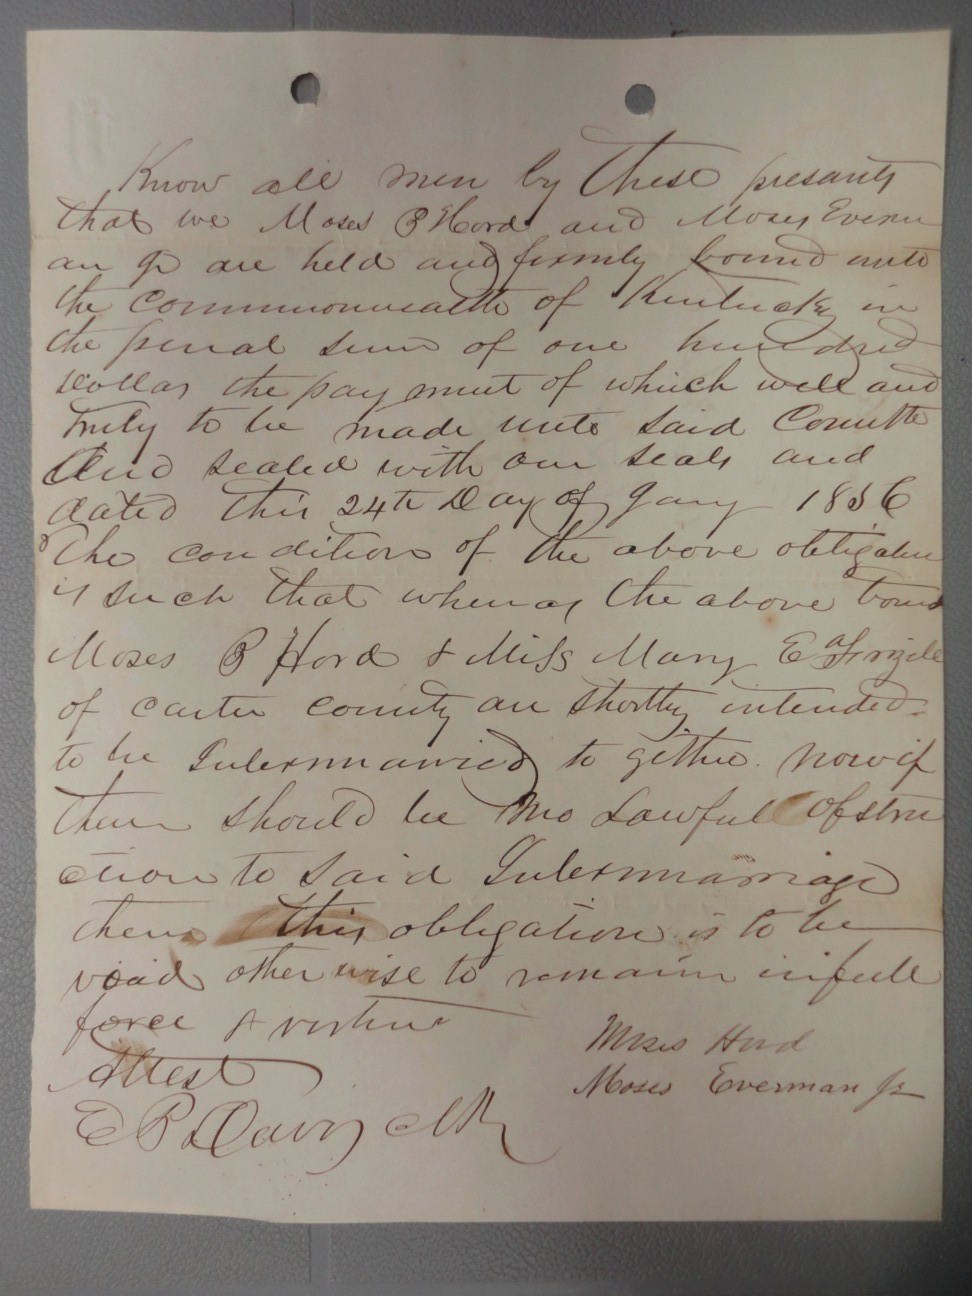 Know all men by these presants
that we Moses B Hord and Moses Everm
an Jr are held and firmly bound unto
the Commonwealth of Kentucky in
the penal sum of one hundred
Dollas the payment of which well and
truly to be made unto said Comlth
And sealed with our seals and
dated this 24th Day of Jany 1856
The condition of the above obligation
is such that wheras the above boun
Moses B Hord & Miss Mary E
of Carter County are shortly intended
to be Intermarried to gether. now if
there should be no Lawful obstru
ction to said Intermarriage
then this obligation is to be
void other wise to remain in full
force & virtue
Moses Hord
Attest
Moses Everman Jr
E P Davis Clk